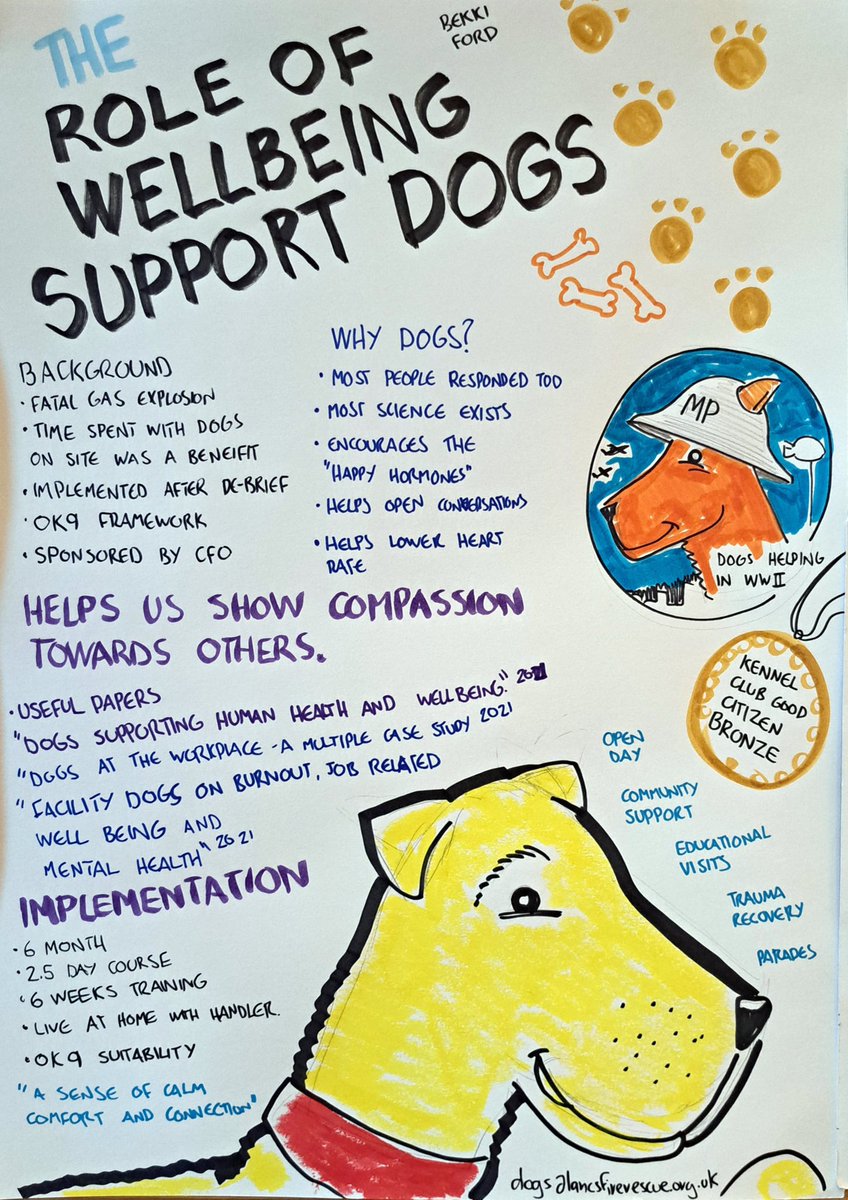 THE
ROLE OF
WELLBEING
SUPPORT DOGS
BEKKI
FORD
BACKGROUND
• FATAL GAS EXPLOSION
• TIME SPENT WITH DOGS
ON SITE WAS A BENEIFIT
• IMPLEMENTED AFTER DE-BRIEF
• OK9 FRAMEWORK
• SPONSORED BY CFO
WHY DOGS?
• MOST PEOPLE RESPONDED TOO
• MOST SCIENCE EXISTS
• ENCOURAGES THE
"HAPPY HORMONES"
• HELPS OPEN CONVERSATIONS
• HELPS LOWER HEART
RATE
MP
DOGS HELPING
IN WWII
HELPS US SHOW COMPASSION
TOWARDS OTHERS.
• USEFUL PAPERS
"DOGS SUPPORTING HUMAN HEALTH AND WELLBEING."
"DOGS AT THE WORKPLACE - A MULTIPLE CASE STUDY 2021
"FACILITY DOGS ON BURNOUT, JOB RELATED
WELL BEING AND
MENTAL HEALTH" 2021
KENNEL
CLUB GOOD
CITIZEN
BRONZE
OPEN
DAY
COMMUNITY
SUPPORT
EDUCATIONAL
VISITS
TRAUMA
RECOVERY
PARADES
IMPLEMENTATION
• 6 MONTH
• 2.5 DAY COURSE
• 6 WEEKS TRAINING
• LIVE AT HOME WITH HANDLER.
• OK9 SUITABILITY
"A SENSE OF CALM
COMFORT AND CONNECTION"
dogs@lancsfirerescue.org.uk